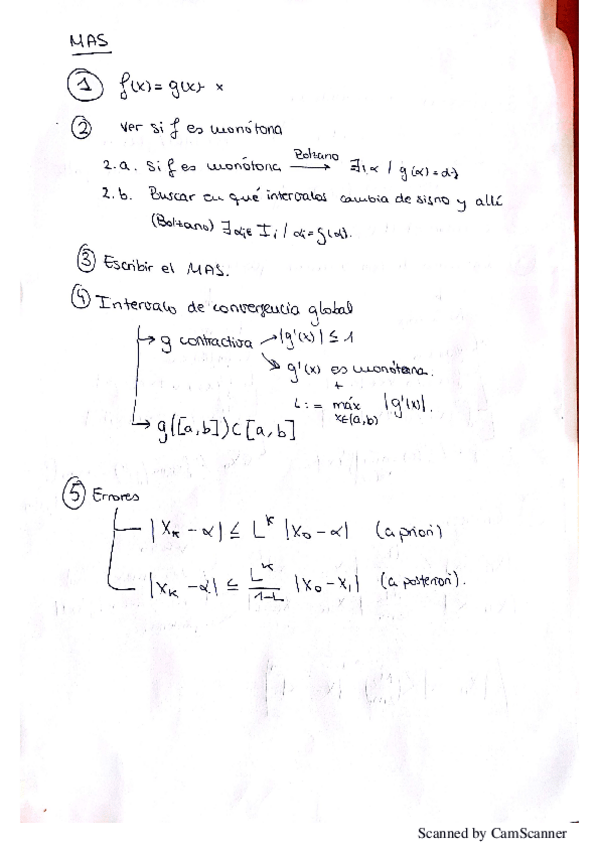 MAS
① f(x) = g(x) - x
② Ver si f es monótona
2.a. Si f es monótona → Bolzano ∃! α / g(α) = α
2.b. Buscar en qué intervalos cambia de signo y allí
(Bolzano) ∃ αi ∈ Ii / αi = g(αi).
③ Escribir el MAS.
④ Intervalo de convergencia global
→ g contractiva → |g'(x)| ≤ 1
↘ g'(x) es monótona.
+
L := máx |g'(x)|.
x∈(a,b)
→ g([a,b]) ⊂ [a,b]
⑤ Errores
|xₖ - α| ≤ Lᵏ |x₀ - α| (a priori)
|xₖ - α| ≤ Lᵏ/(1-L) |x₀ - x₁| (a posteriori).
Scanned by CamScanner